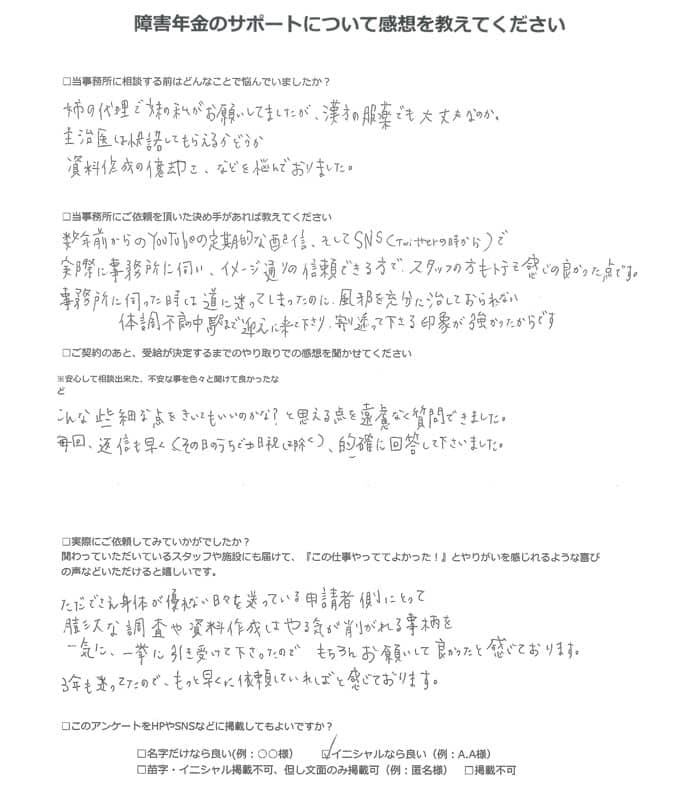 障害年金のサポートについて感想を教えてください
□当事務所に相談する前はどんなことで悩んでいましたか？
姉の代理で妹の私がお願いしてましたが、漢方の服薬でも大丈夫なのか。
主治医は快諾してもらえるかどうか
資料作成の億劫さ、などを悩んでおりました。
□当事務所にご依頼を頂いた決め手があれば教えてください
数年前からのYouTubeの定期的な配信、そしてSNS(Twitterの時から)で
実際に事務所に伺い、イメージ通りの信頼できる方で、スタッフの方もトテモ感じの良かった点です。
事務所に伺った時は道に迷ってしまったのに、風邪を充分に治しておられない
体調不良の中、駅まで迎えに来て下さり、寄り添って下さる印象が強かったからです
□ご契約のあと、受給が決定するまでのやり取りでの感想を聞かせてください
※安心して相談出来た、不安な事を色々と聞けて良かったな
ど
こんな些細な点をきいてもいいのかな？と思える点を遠慮なく質問できました。
毎回、返信も早く(その日のうちで土日祝は除く)、的確に回答して下さいました。
□実際にご依頼してみていかがでしたか？
関わっていただいているスタッフや施設にも届けて、『この仕事やっててよかった！』とやりがいを感じれるような喜び
の声などいただけると嬉しいです。
ただでさえ身体が優れない日々を送っている申請者側にとって
膨大な調査や資料作成はやる気が削がれる事柄を
一気に、一挙に引き受けて下さったので もちろんお願いして良かったと感じております。
3年も迷ってたので、もっと早くに依頼していればと感じております。
□このアンケートをHPやSNSなどに掲載してもよいですか？
□名字だけなら良い(例：○○様) ☑イニシャルなら良い（例：A.A様）
□苗字・イニシャル掲載不可、但し文面のみ掲載可（例：匿名様） □掲載不可